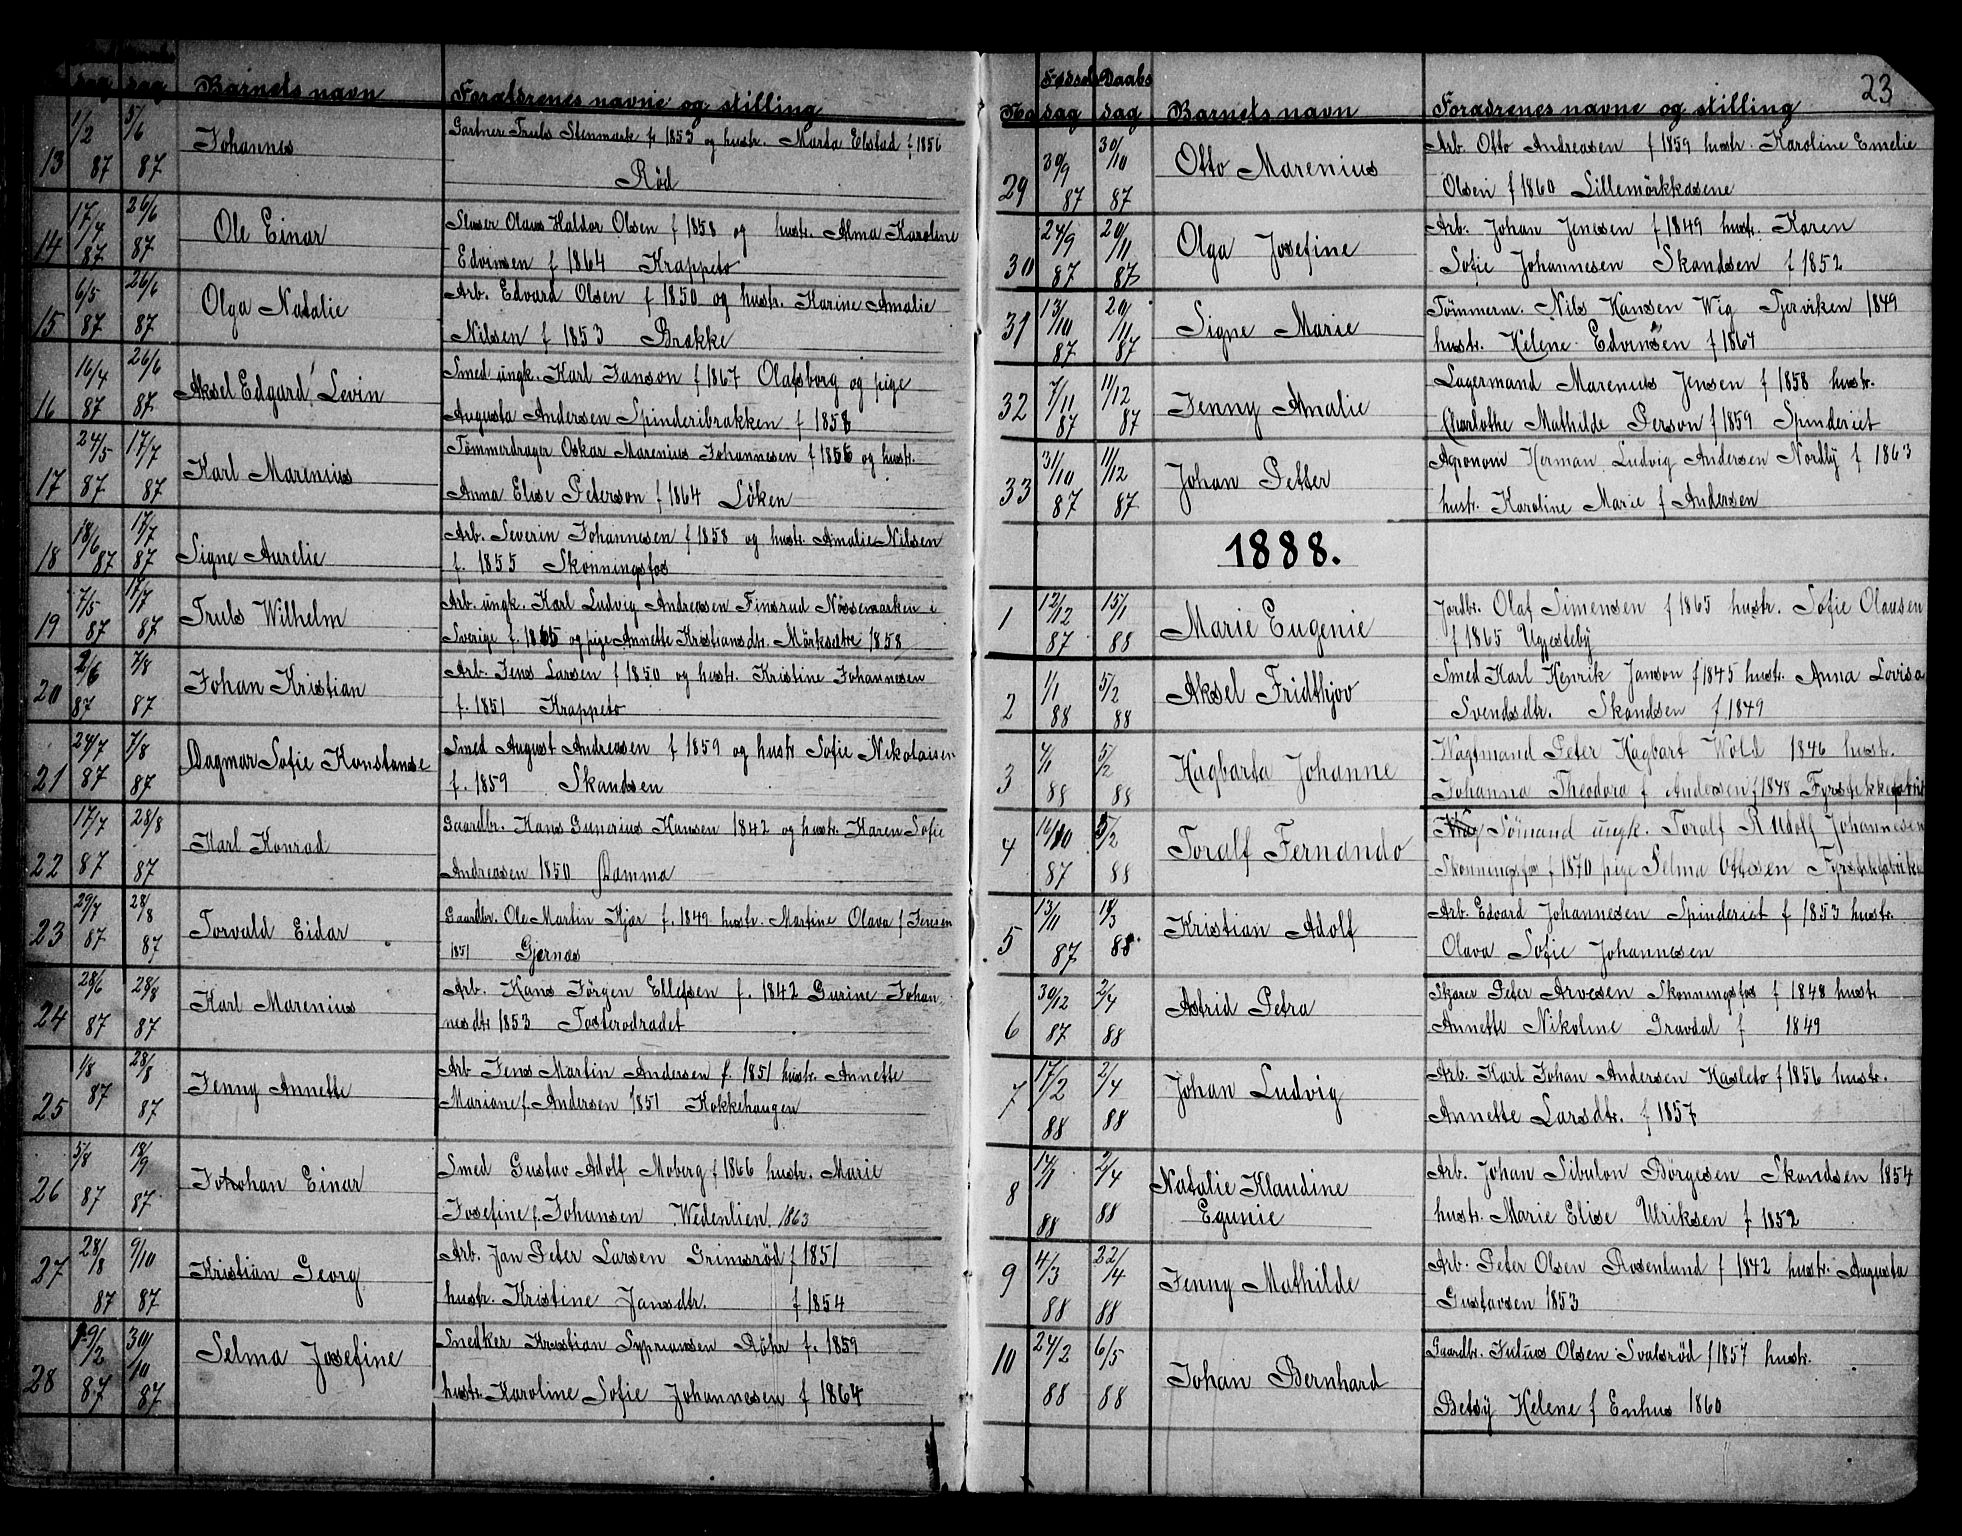 dag dag Barnets navn Forældrenes navne og stilling
13 1/2 87 5/6 87 Johannes Gartner Truls Stenmark f. 1853 og hustr. Marta Elstad f 1856
Rød
14 17/4 87 26/6 87 Ole Einar Sloser Olaus Haldor Olsen f 1858 og hustr. Alma Karoline
Edvinsen f 1864 Krappeto
15 6/5 87 26/6 87 Olga Natalie Arb. Edvard Olsen f 1850 og hustr. Karine Amalie
Nilsen f 1853 Brække
16 16/4 87 26/6 87 Aksel Edgard Levin Smed ungk. Karl Janson f 1867 Olafsborg og pige
Augusta Andersen Spinderibrakken f 1858
17 24/5 87 17/7 87 Karl Marenius Tømmerdrager Oskar Marenius Johannesen f 1856 og hustr.
Anna Elise Peterson f 1864 Løken
18 18/6 87 17/7 87 Signe Aurelie Arb. Severin Johannesen f 1858 og hustr. Amalie Nilsen
f. 1855 Skonningsfos
19 7/5 87 17/7 87 Truls Wilhelm Arb. ungk. Karl Ludvig Andreasen Finsrud Nøssemarken i
Sverige f. 1865 og pige Annette Kristiansdtr. Mörksætre 1858
20 2/6 87 7/8 87 Johan Kristian Arb. Jens Larsen f 1850 og hustr. Kristine Johannesen
f. 1851 Krappeto
21 24/7 87 7/8 87 Dagmar Sofie Konstanse Smed August Andreasen f 1859 og hustr Sofie Nikolaisen
f. 1859 Skandsen
22 17/7 87 28/8 87 Karl Konrad Gaardbr. Hans Gunerius Hansen 1842 og hustr. Karen Sofie
Andreasen 1850 Damma
23 29/7 87 28/8 87 Torvald Eidar Gaardbr. Ole Martin Kjær f. 1849 hustr. Martine Olava f Jensen
1851 Gjernæs
24 28/6 87 28/8 87 Karl Marenius Arb. Hans Jörgen Ellefsen f. 1842 Gurine Johan
nesdtr 1853 Tosterødradet
25 1/8 87 28/8 87 Jenny Annette Arb Jens Martin Andersen f. 1851 hustr. Annette
Mariane f. Andersen 1851 Kokkehaugen
26 5/8 87 18/9 87 Johan Einar Smed Gustav Adolf Moberg f 1866 hustr. Marie
Josefine f. Johansen Wedenlien 1863
27 28/8 87 9/10 87 Kristian Georg Arb. Jan Peter Larsen Grimsrød f 1851
hustr. Kristine Jansdtr. f 1854
28 19/2 87 30/10 87 Selma Josefine Snedker Kristian Sypriansen Röhr f. 1859
hustr. Karoline Sofie Johannesen f 1864
23
No Fødselsdag Daabsdag Barnets navn Forældrenes navne og stilling
29 30/9 87 30/10 87 Otto Marenius Arb. Otto Andreasen f 1859 hustr. Karoline Emelie
Olsen f 1860 Lillemörkkasene
30 24/9 87 20/11 87 Olga Josefine Arb. Johan Jensen f 1849 hustr. Karen
Sofie Johannesen Skandsen f 1852
31 13/10 87 20/11 87 Signe Marie Tømmerm. Nils Hansen Wig Tjerviken 1849
hustr. Helene Edvinsen f 1867
32 7/11 87 11/12 87 Jenny Amalie Lagermand Marenius Jensen f 1858 hustr.
Charlothe Mathilde Person f 1859 Spinderiet
33 31/10 87 11/12 87 Johan Petter Agronom Herman Ludvig Andersen Nordby f 1863
hustr. Karoline Marie f Andersen
1888.
1 12/12 87 15/1 88 Marie Eugenie Jordbr. Olaf Simensen f 1865 hustr. Sofie Olausen
f 1865 Ugjesteby
2 1/1 88 5/2 88 Aksel Fridthjov Smed Karl Henrik Janson f 1845 hustr. Anna Lovisa
Svendsdtr. Skandsen f 1849
3 4/1 88 5/2 88 Hagbarta Johanne Wagtmand Peter Hagbart Wold 1846 hustr.
Johanna Theodora f Andersen f 1848 Fyrstikkefabrik
4 10/10 87 5/2 88 Toralf Fernando Wag Sömand ungk. Toralf Rudolf Johannesen
Skonningsfos f 1870 pige Selma Ottesen Fyrstikfabrikken
5 13/11 87 18/3 88 Kristian Adolf Arb. Edvard Johannesen Spinderiet f 1853 hustr.
Olava Sofie Johannesen
6 30/12 87 2/4 88 Astrid Petra Skjærer Peter Arvesen Skonningsfos f 1848 hustr
Annette Nikoline Gravdal f 1849
7 17/2 88 2/4 88 Johan Ludvig Arb. Karl Johan Andersen Hasleto f 1856 hustr.
Annette Larsdtr. f 1857
8 17/1 88 2/4 88 Natalie Klaudine
Egunie Arb. Johan Sibulon Börgesen Skandsen 1854
hustr. Marie Elise Ulriksen f 1852
9 4/3 88 22/4 88 Jenny Mathilde Arb. Peter Olsen Rosenlund f 1842 hustr. Augusta
Gustavsen 1853
10 24/2 88 6/5 88 Johan Bernhard Gaardbr. Julius Olsen Svalsrød f 1857 hustr.
Betsy Helene f Enhus 1860